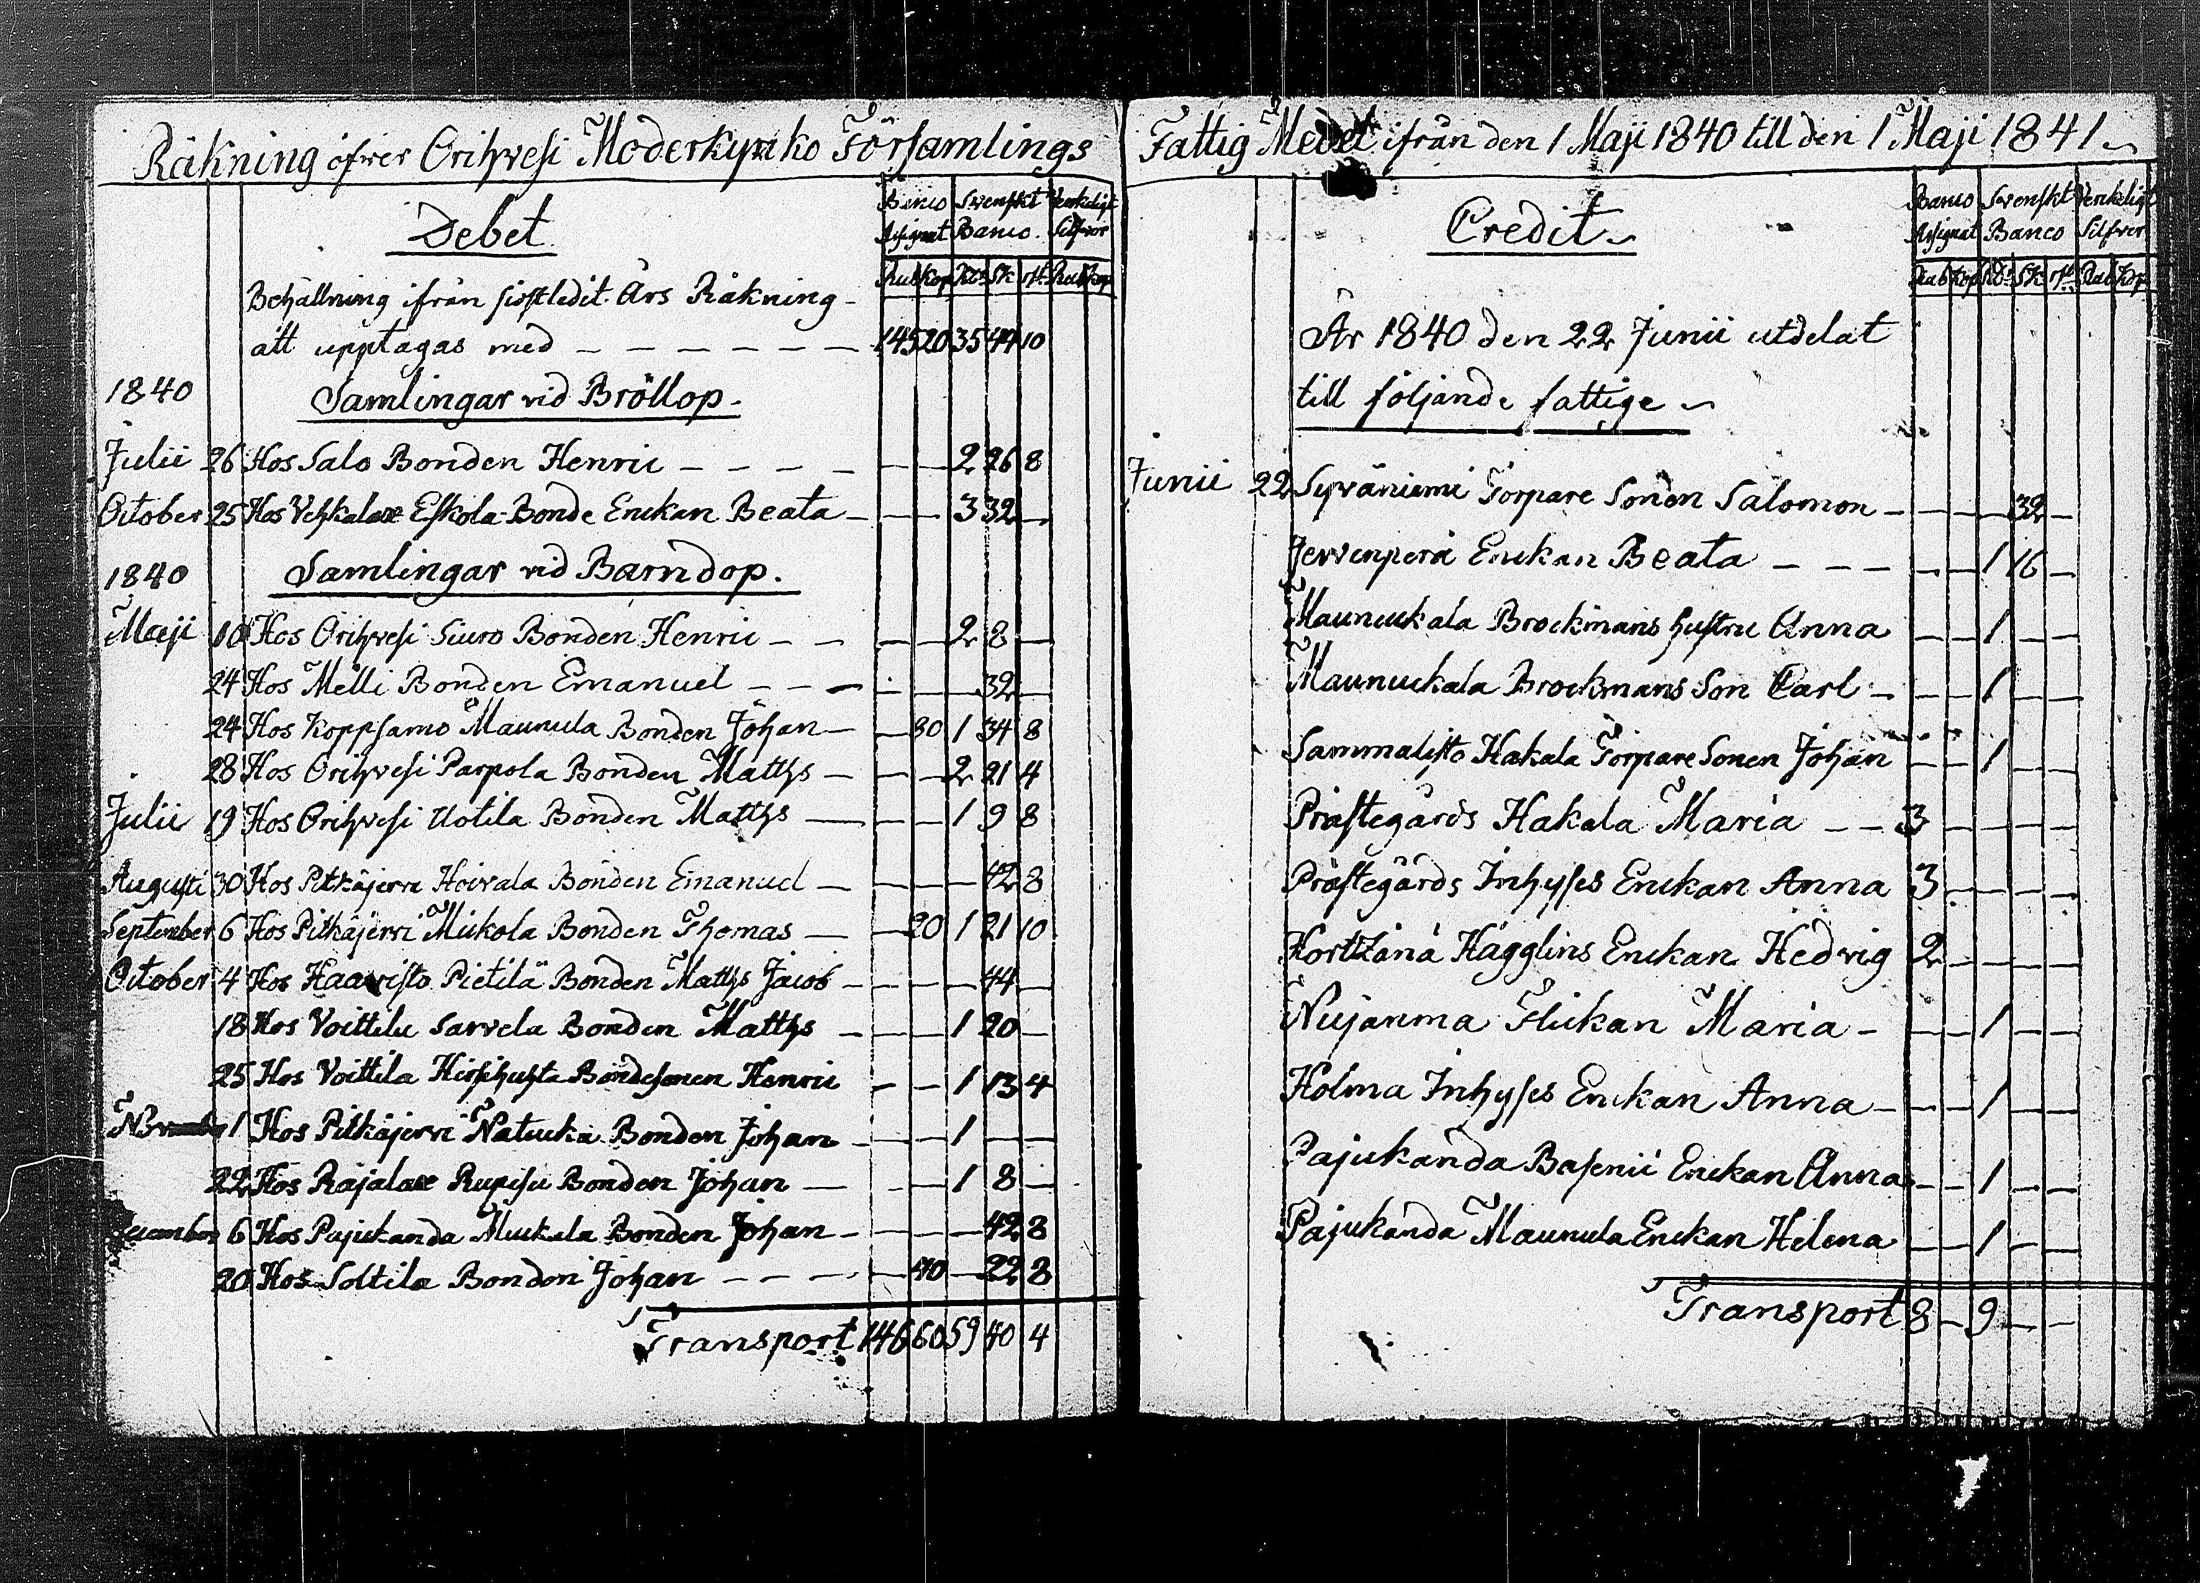 Räkning öfver Orihvesi Moderkyrko Församlings
Debet
Banco Svenskt Verkeligt
Assignat Banco. Silfver
Rub Kop Rd. Sk rst. Rub Kop
Behållning ifrån sistledit Års Räkning
att upptagas med — — — — — — 145 20 35 44 10
1840 Samlingar vid Bröllop.
Julii 26 Hos Salo Bonden Henric — — — — — — 2 26 8
October 25 Hos Vehkalax Eskola Bonde Enckan Beata — — — 3 32 —
1840 Samlingar vid Barndop.
Maji 10 Hos Orihvesi Siuro Bonden Henric — — — — 2 8 —
24 Hos Melli Bonden Emanuel — — — — — — 32 —
24 Hos Koppsamo Maunula Bonden Johan — — 80 1 34 8
28 Hos Orihvesi Parpola Bonden Matths — — — 2 21 4
Julii 19 Hos Orihvesi Uotila Bonden Matths — — — 1 9 8
Augusti 30 Hos Pitkäjervi Hoivala Bonden Emanuel — — — — 42 8
September 6 Hos Pitkäjervi Mickola Bonden Thomas — — 20 1 21 10
October 4 Hos Haavisto Pietilä Bonden Matths Jacob — — — — 44 —
18 Hos Voittila Sarvela Bonden Matths — — — 1 20 —
25 Hos Voittila Bondesonen Henric — — 1 13 4
1 Hos Pitkäjervi Natucka Bonden Johan — — — 1 — —
22 Hos Rajalax Bonden Johan — — — 1 8 —
6 Hos Pajukanda Muckala Bonden Johan — — — — 42 8
20 Hos Soltila Bonden Johan — — — — — 40 — 22 8
Transport 146 60 59 40 4
Fattig Medel ifrån den 1 Maji 1840 till den 1 Maji 1841
Credit
Banco Svenskt Verkeligt
Assignat Banco Silfver
Rub Kop Rd. Sk rst. Rub Kop
År 1840 den 22 Junii utdelat
till följande fattige
Junii 22 Syväniemi Torpare Sonen Salomon — — — — 32 —
Jervenperä Enckan Beata — — — — — 1 16 —
Maunuckala Brockmans hustru Anna — — 1 — —
Maunuckala Brockmans Son Carl — — — 1 — —
Sammalisto Hakala Torpare Sonen Johan — — 1 — —
Prästegårds Hakala Maria — — 3 — — — —
Prästegårds Inhyses Enckan Anna 3 — — — —
Hägglins Enckan Hedvig 2 — — — —
Nujanma Flickan Maria — — — 1 — —
Holma Inhyses Enckan Anna — — — 1 — —
Pajukanda Enckan Anna — — 1 — —
Pajukanda Maunula Enckan Helena — — 1 — —
Transport 8 — 9 — —